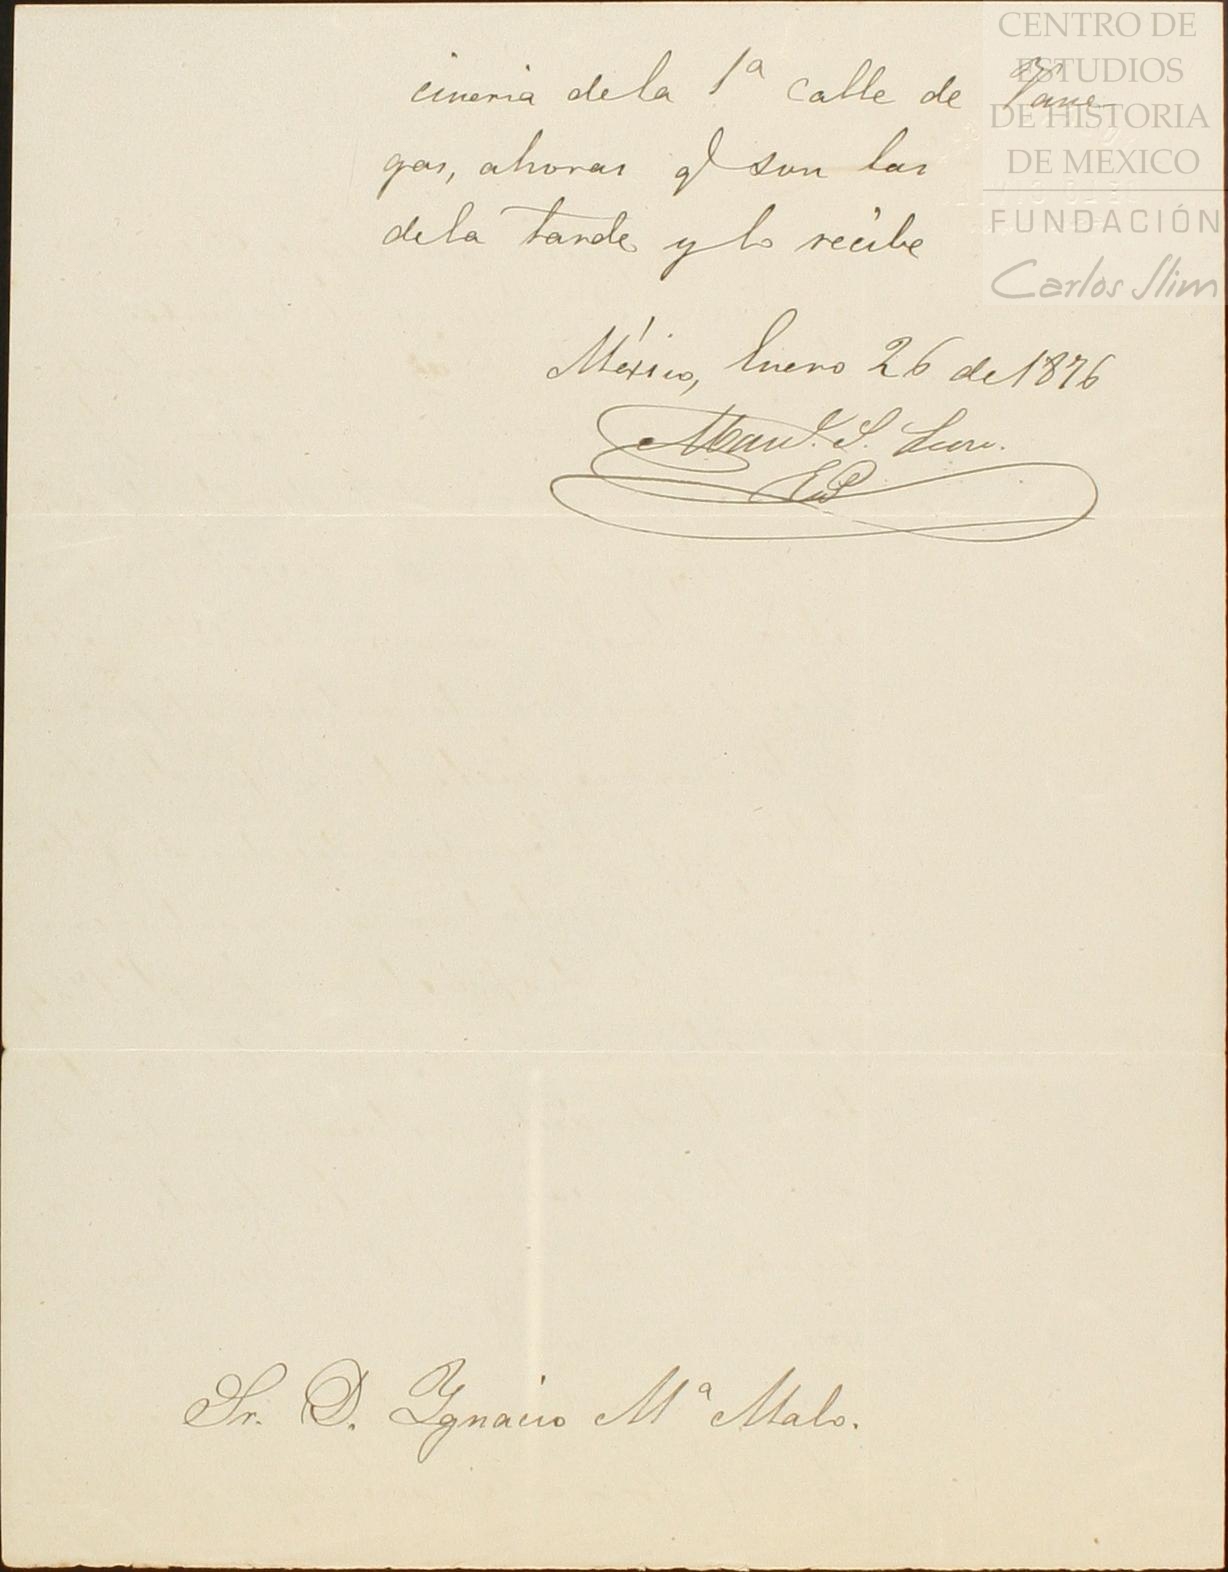 cineria dela 1ª calle de Vane-
gas, ahoras q son las
dela tarde y lo recibe
México, Enero 26 de 1876
Man.l S.
Sr. D. Ygnacio Mª Malo.
CENTRO DE
ESTUDIOS
DE HISTORIA
DE MEXICO
FUNDACIÓN
Carlos Slim